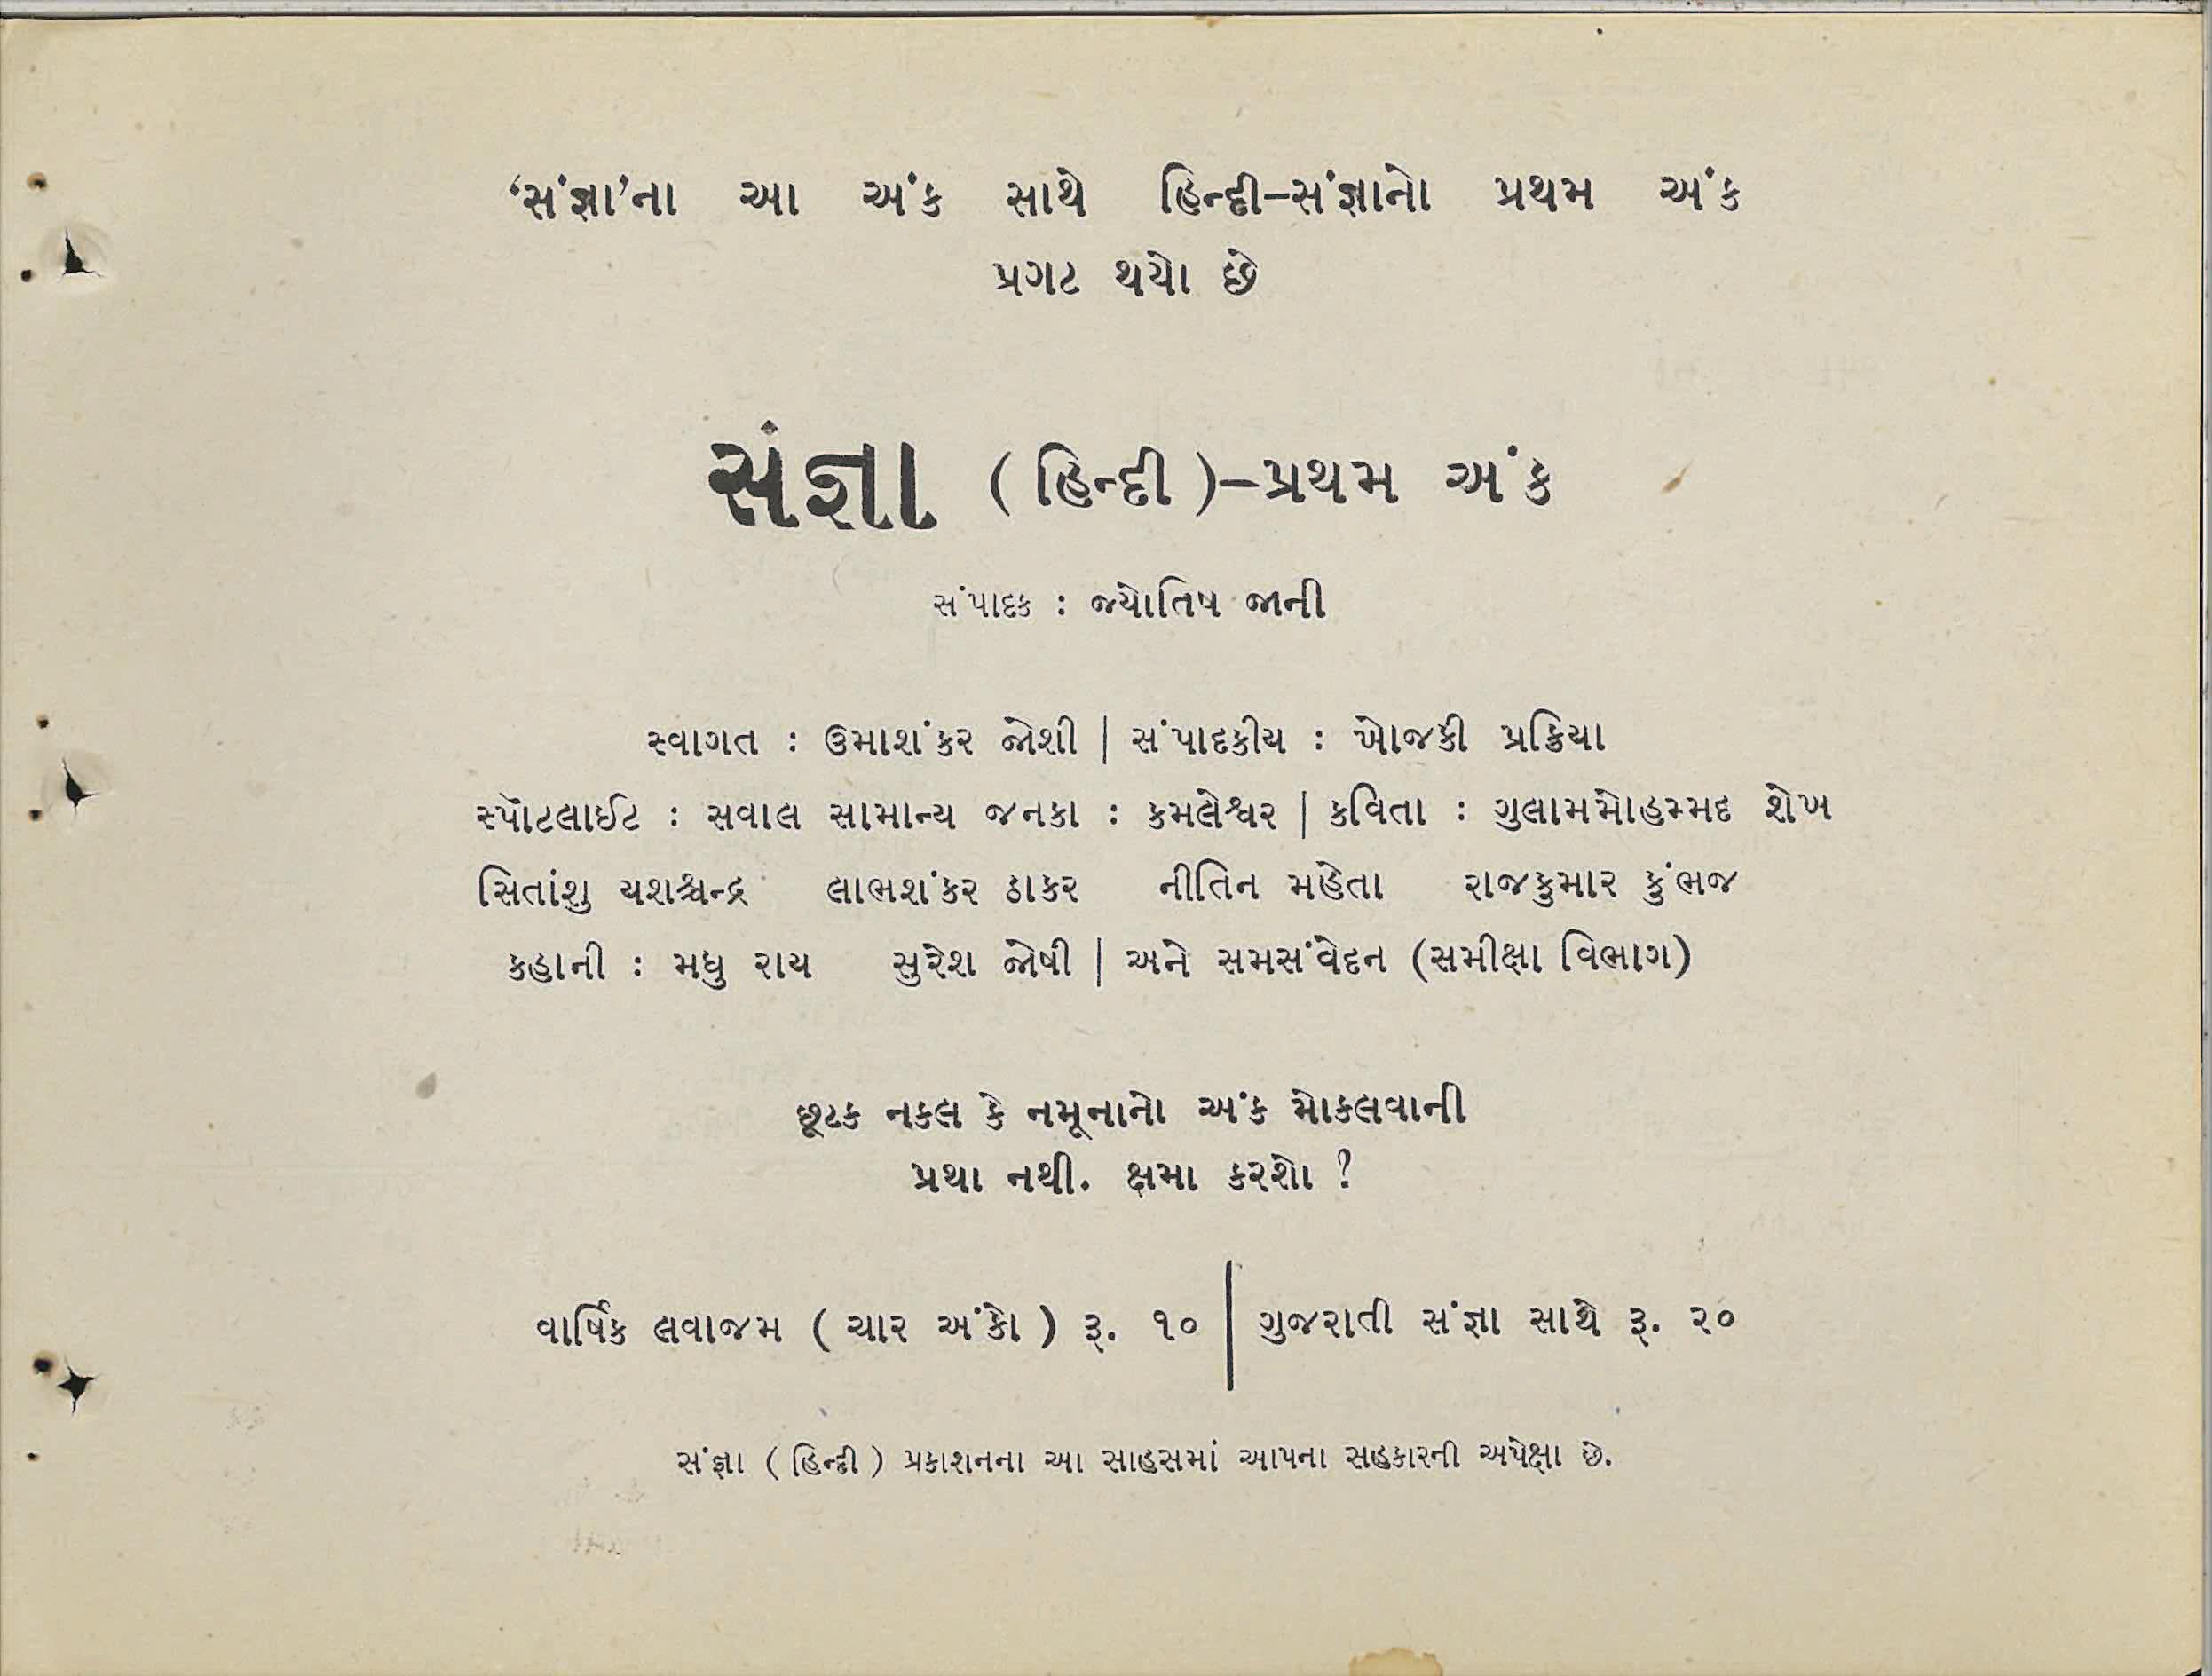 ‘સંજ્ઞા’ના આ અંક સાથે હિન્દી–સંજ્ઞાનો પ્રથમ અંક
પ્રગટ થયો છે
સંજ્ઞા (હિન્દી)–પ્રથમ અંક
સંપાદક : જ્યોતિષ જાની
સ્વાગત : ઉમાશંકર જોશી | સંપાદકીય : ખોજકી પ્રક્રિયા
સ્પૉટલાઈટ : સવાલ સામાન્ય જનકા : કમલેશ્વર | કવિતા : ગુલામમોહમ્મદ શેખ
સિતાંશુ યશશ્ચન્દ્ર લાભશંકર ઠાકર નીતિન મહેતા રાજકુમાર કુંભજ
કહાની : મધુ રાય સુરેશ જોષી | અને સમસંવેદન (સમીક્ષા વિભાગ)
છૂટક નકલ કે નમૂનાનો અંક મોકલવાની
પ્રથા નથી. ક્ષમા કરશો ?
વાર્ષિક લવાજમ ( ચાર અંકો ) રૂ. ૧૦ | ગુજરાતી સંજ્ઞા સાથે રૂ. ૨૦
સંજ્ઞા ( હિન્દી ) પ્રકાશનના આ સાહસમાં આપના સહકારની અપેક્ષા છે.